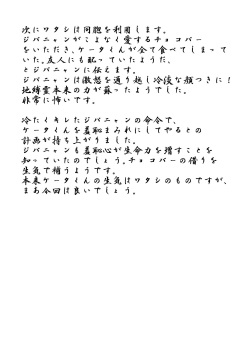 次にワタシは同胞を利用します。
ジバニャンがこよなく愛するチョコバー
をいただき、ケータくんが全て食べてしまって
いた。友人にも配っていたようだ、
とジバニャンに伝えます。
ジバニャンは激怒を通り越し冷淡な顔つきに!
地縛霊本来の力が蘇ったようでした。
非常に怖いです。

冷たくキレたジバニャンの命令で、
ケータくんを羞恥まみれにしてやるとの
計画が持ち上がりました。
ジバニャンも羞恥心が生命力を増すことを
知っていたのでしょう。チョコバーの借りを
生気で補うようです。
本来ケータくんの生気はワタシのものですが、
まあ今回は良いでしょう。